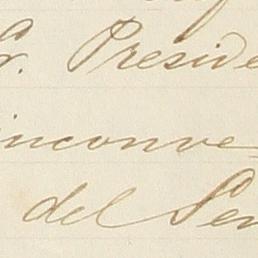 Sr. Preside
inconve-
del Sen